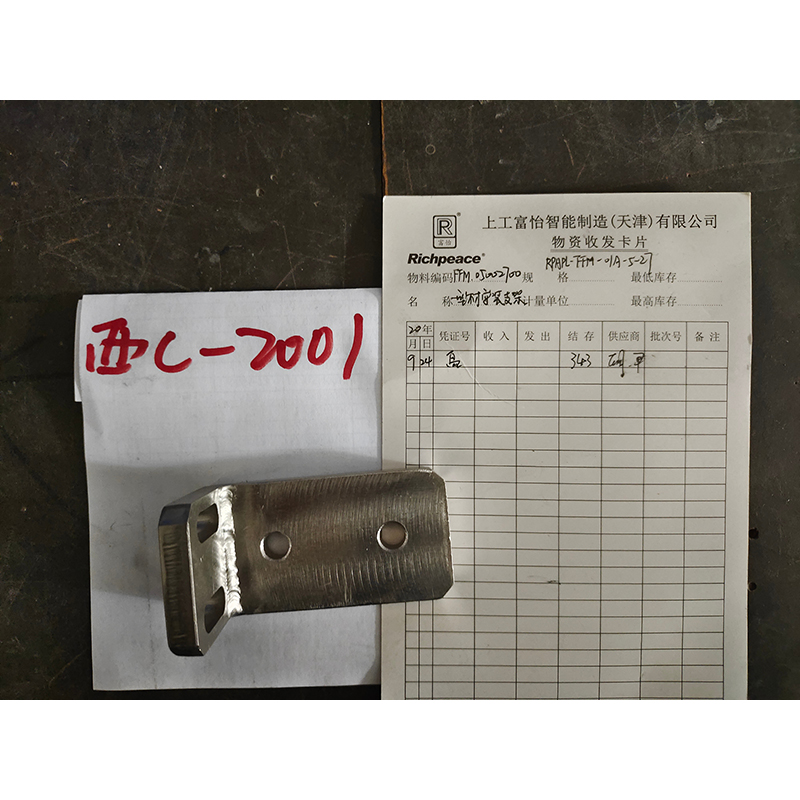 西C-2001
R
富怡
Richpeace
上工富怡智能制造(天津)有限公司
物资收发卡片
RPAPL-FFM-01A-5-27
物料编码 FFM.05002700 规 格 最低库存
名 称 安装支架 计量单位 最高库存
20年 凭证号 收入 发出 结存 供应商 批次号 备注
月 日
9 24 343